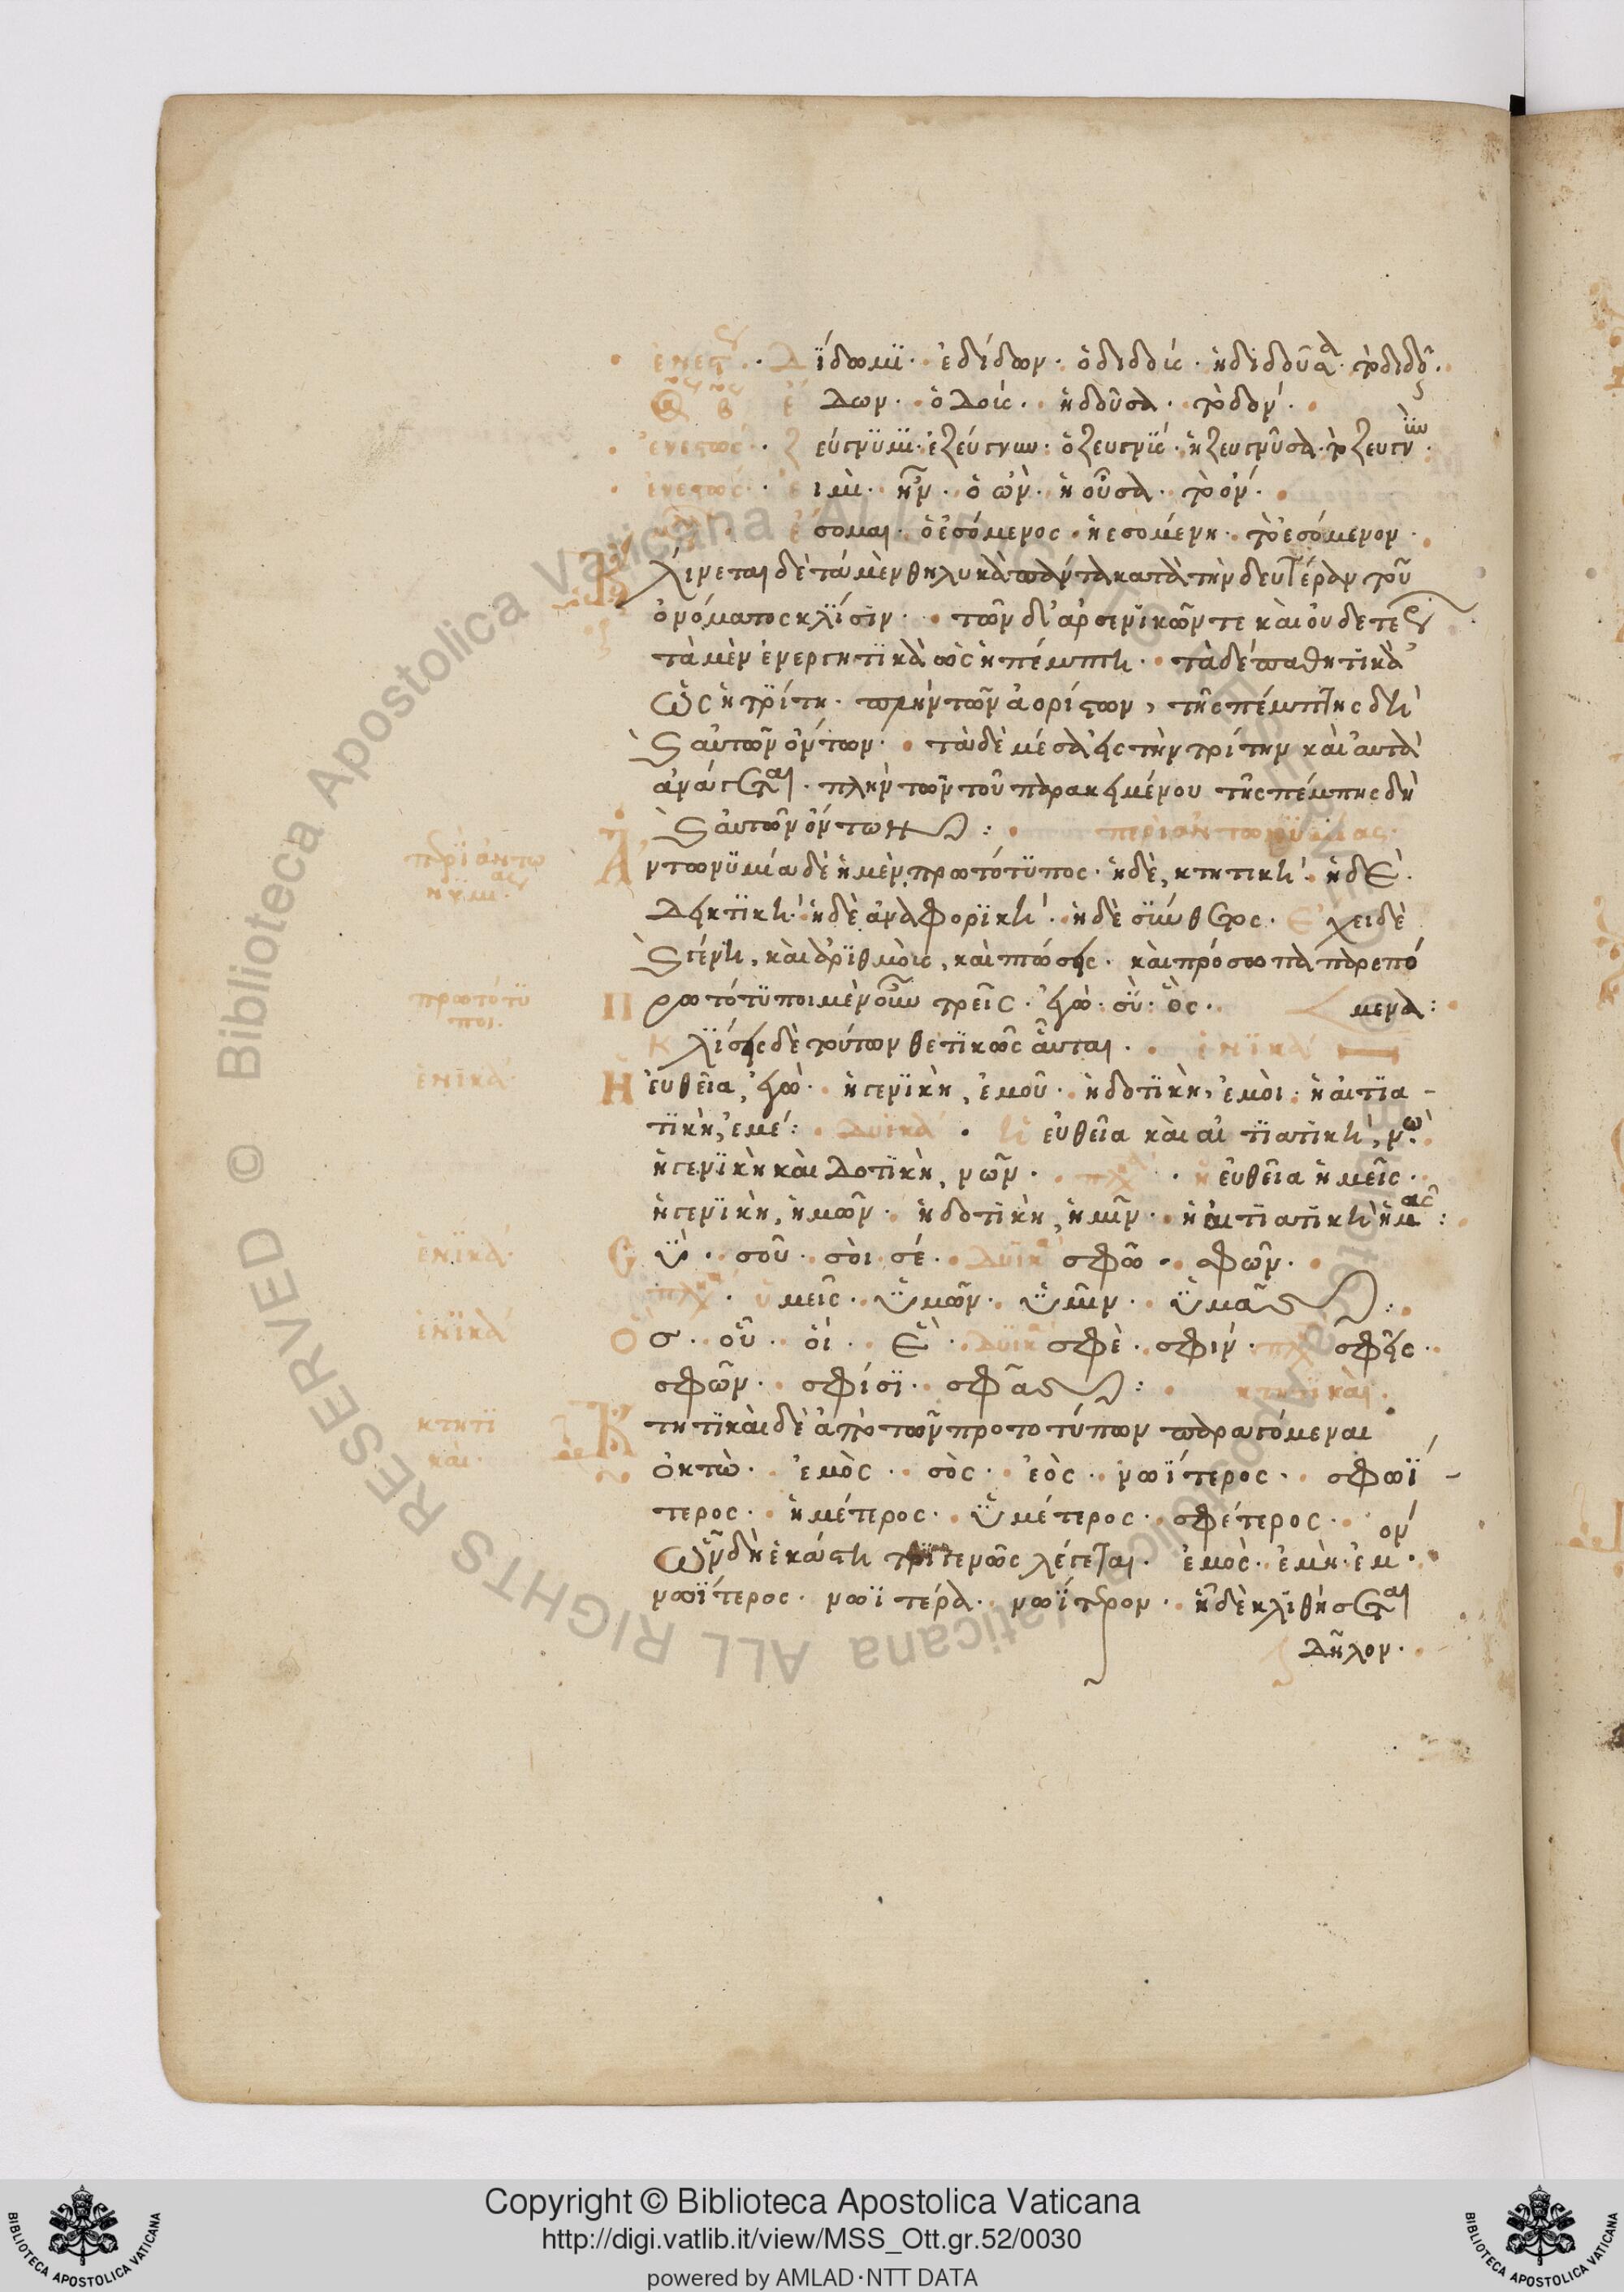 ἐνεστ · Δίδωμϊ · ἐδίδων · ὁ διδοὺς · ἡ διδοῦσα · τὸ διδὸν ·
δων · ὁ δοὺς · ἡ δοῦσα · τὸ δὸν ·
ἐνεστώς · ζεύγνϋμϊ · ἐζεύγνυν · ὁ ζευγνϋς · ἡ ζευγνῦσα · τὸ ζευγνὺν ·
ἐνεστώς · εἰμὶ · ἦν · ὁ ὢν · ἡ οὖσα · τὸ ὄν ·
ἔσομαι · ὁ ἐσόμενος · ἡ ἐσομένη · τὸ ἐσόμενον ·
Κλίνεται δὲ τὰ μὲν θηλυκὰ πάντα κατὰ τὴν δευτέραν τοῦ
ὀνόματος κλΐσιν · τῶν δ' ἀρσενικῶν τε καὶ οὐδετέρων
τὰ μὲν ἐνεργητϊκὰ ὡς ἡ πέμπτη · τὰ δὲ παθητϊκὰ
ὡς ἡ τρίτη · πλὴν τῶν ἀορίστων, τῆς πέμπτης δὴ
καὶ αὐτῶν ὄντων · τὰ δὲ μέσα εἰς τὴν τρίτην καὶ αὐτὰ
ἀνάγεται · πλὴν τῶν τοῦ παρακειμένου τῆς πέμπτης δὴ
καὶ αὐτῶν ὄντων : περὶ ἀντωνϋμίας
περὶ ἀντω
νϋμίας
Ἀντωνϋμία δὲ ἡ μὲν πρωτότϋπος · ἡ δὲ, κτητικὴ · ἡ δὲ
δεικτϊκὴ · ἡ δὲ ἀναφορϊκὴ · ἡ δὲ σύνθετος · Ἔχει δὲ
καὶ γένη, καὶ ἀρϊθμοὺς, καὶ πτώσεις · καὶ πρόσωπα παρεπό
πρωτότϋ
ποι ·
Πρωτότϋποι μὲν οὖν τρεῖς · ἐγὼ · σὺ · ὅς · μενα :
Κλΐσεις δὲ τούτων θετϊκῶς αὗται · ἑνϊκὰ
ἑνϊκὰ
Ἡ εὐθεῖα, ἐγὼ · ἡ γενϊκὴ, ἐμοῦ · ἡ δοτϊκὴ, ἐμοὶ · ἡ αἰτϊα-
τϊκὴ, ἐμέ : Δυϊκὰ · ἡ εὐθεῖα καὶ αἰτϊατϊκὴ, νὼ ·
ἡ γενϊκὴ καὶ δοτϊκὴ, νῶν · πλ · ἡ εὐθεῖα ἡμεῖς ·
ἡ γενϊκὴ, ἡμῶν · ἡ δοτϊκὴ, ἡμῖν · ἡ αἰτϊατϊκὴ ἡμᾶς :
ἑνϊκά ·
Σϋ · σοῦ · σοὶ · σέ · δυϊκὰ σφῶ · σφῶν ·
πλ · ὑμεῖς · ὑμῶν · ὑμῖν · ὑμᾶς :
ἑνϊκὰ
Ὅς · οὗ · οἷ · ἓ · δυϊκὰ σφὲ · σφὶν · πλ σφεῖς ·
σφῶν · σφίσϊ · σφᾶς : κτητϊκαὶ ·
κτητϊ
καὶ ·
Κτητϊκαὶ δὲ ἀπὸ τῶν προτοτύπων παραγόμεναι
ὀκτὼ · ἐμὸς · σὸς · ἑὸς · νωΐτερος · σφωΐ-
τερος · ἡμέτερος · ὑμέτερος · σφέτερος ·
ὧν δὴ ἑκάστη τριγενῶς λέγεται · ἐμὸς · ἐμὴ · ἐμόν ·
νωΐτερος · νωϊτέρα · νωΐτερον · ἡ δὲ κλιθήσεται
δῆλον ·
Copyright © Biblioteca Apostolica Vaticana
http://digi.vatlib.it/view/MSS_Ott.gr.52/0030
powered by AMLAD·NTT DATA
BIBLIOTECA APOSTOLICA VATICANA
BIBLIOTECA APOSTOLICA VATICANA
© Biblioteca Apostolica Vaticana ALL RIGHTS RESERVED